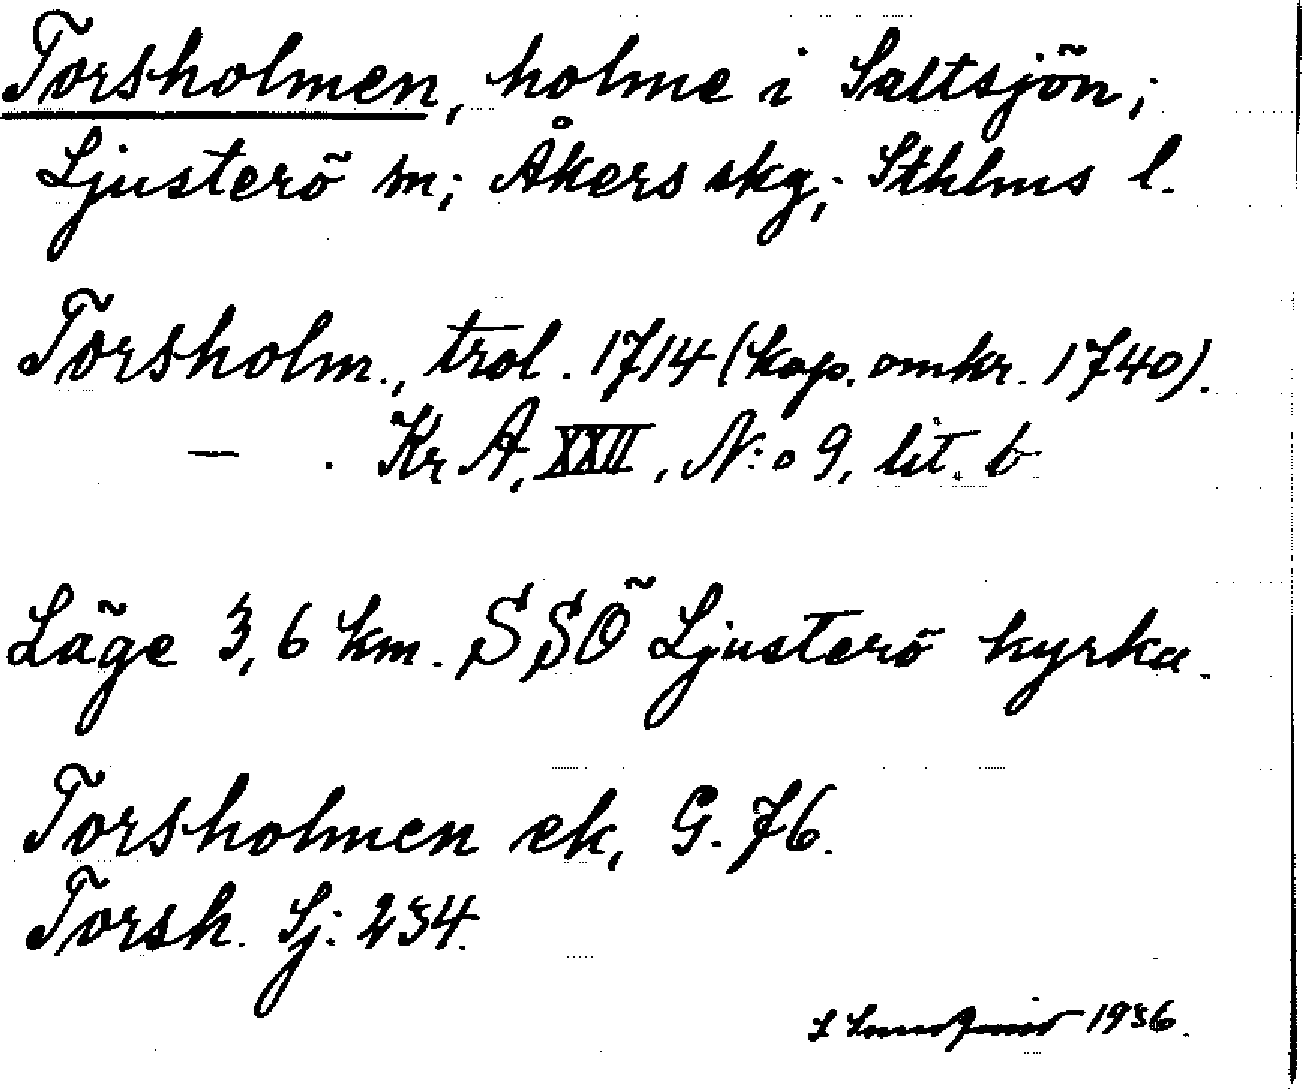 Torsholmen, holme i Saltsjön;
Ljusterö sn; Åkers skg; Sthlms l.
Torsholm., trol. 1714 (kop. omkr. 1740).
— . Kr A, XXII, N:o 9, lit. b
Läge 3,6 km. SSÖ Ljusterö kyrka.
Torsholmen ek, G. 76.
Torsh. Sj: 234.
1936.